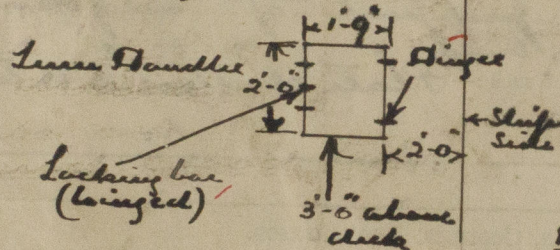 1'-9"
Turn Handle
Hinge
2'-0"
Ship's
side
2'-0"
Locking bar
(hinged)
3'-0" above
deck